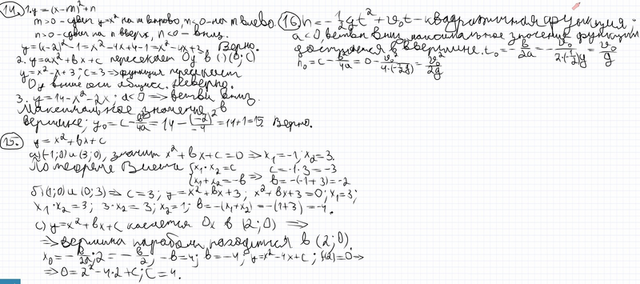 14. 1. y = (x-m)²+n
m>0 - сдвиг y=x² на m вправо, m<0 - на m влево.
n>0 - сдвиг на n вверх, n<0 - вниз.
y=(x-2)²-1=x²-4x+4-1=x²-4x+3. Верно.
2. y=ax²+bx+c пересекает Oy в (0; c)
y=x²-x+3; c=3 ⇒ функция пересекает
Oy выше оси абсцисс. Неверно.
3. y=14-x²-2x; a<0 ⇒ ветви вниз.
Максимальное значение в
вершине; y₀=c-b²/4a=14-(-2)²/-4=14+1=15. Верно.
15. y=x²+bx+c
a) (-1;0) и (3;0), значит x²+bx+c=0 ⇒ x₁=-1, x₂=3.
По теореме Виета { x₁·x₂=c x₁+x₂=-b ⇒ c=-1·3=-3 b=-(-1+3)=-2
б) (1;0) и (0;3) ⇒ c=3; y=x²+bx+3, x²+bx+3=0; x₁=3;
x₁·x₂=3; 3·x₂=3; x₂=1; b=-(x₁+x₂)=-(1+3)=-4.
c) y=x²+bx+c касается Ox в (2;0) ⇒
⇒ вершина параболы находится в (2;0).
x₀=-b/2a; 2=-b/2, -b=4; b=-4, y=x²-4x+c; f(2)=0 ⇒
⇒ 0=2²-4·2+c; c=4.
16. h=-1/2gt²+v₀t - квадратичная функция.
a<0, ветви вниз, максимальное значение функции
достигается в вершине. t₀=-b/2a=-v₀/2·(-1/2)g=v₀/g
h₀=c-b²/4a=0-v₀²/4·(-1/2g)=v₀²/2g